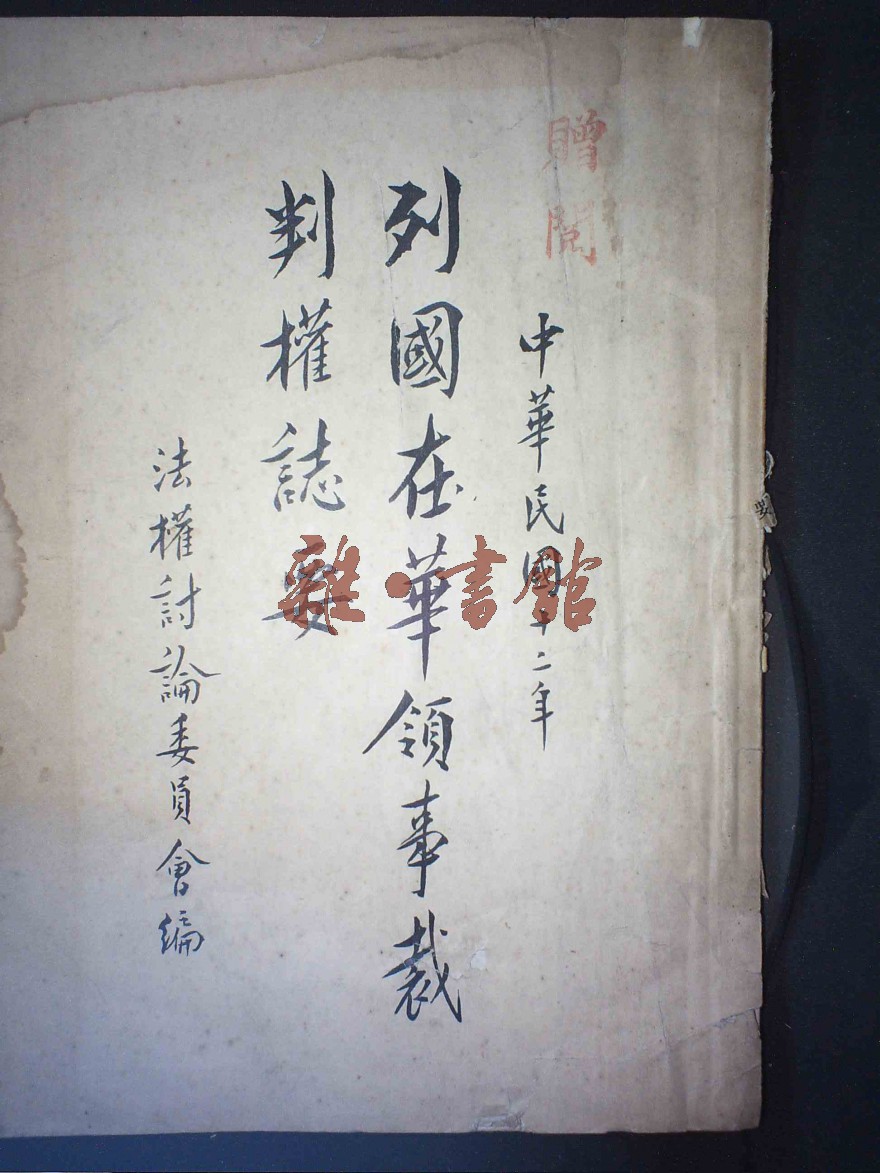 贈閱
中華民國十二年
列國在華領事裁
判權誌要
法權討論委員會編
雜·書館